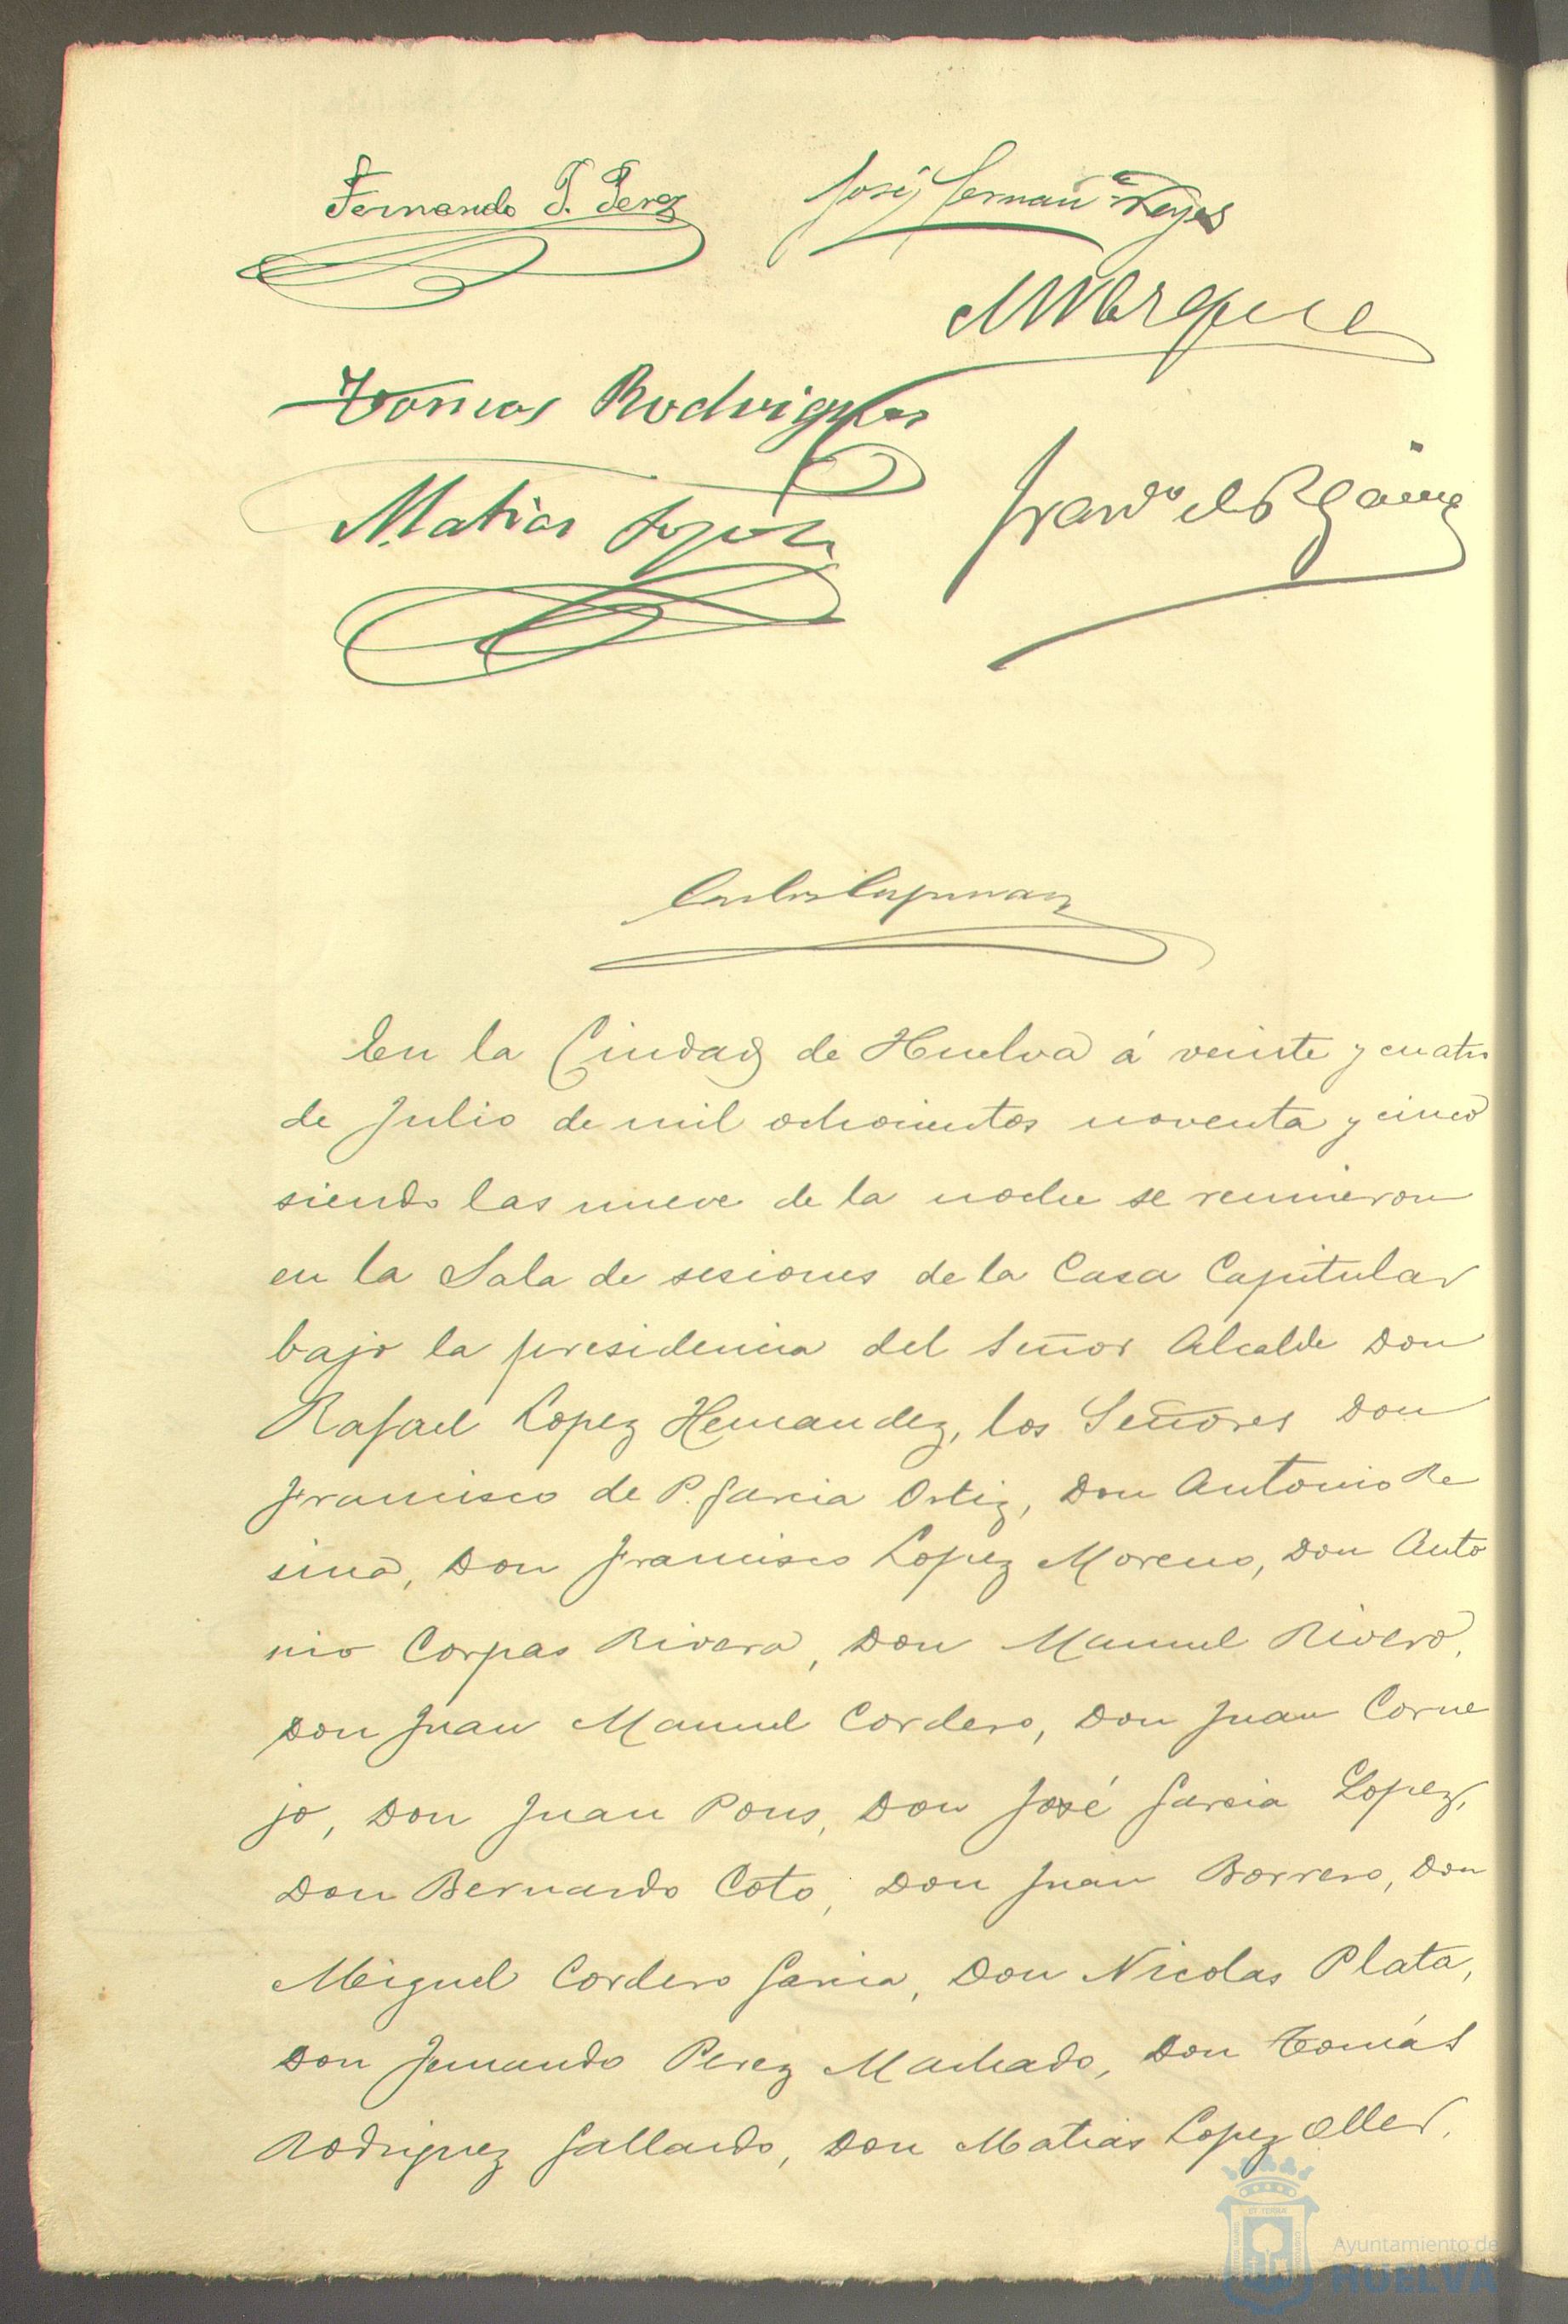 Fernando P. Perez
José Hernan Reyes
Tomas Rodriguez
Matias Lopez
En la Ciudad de Huelva á veinte y cuatro
de Julio de mil ochocientos noventa y cinco
siendo las nueve de la noche se reunieron
en la Sala de sesiones de la Casa Capitular
bajo la presidencia del Señor Alcalde Don
Rafael Lopez Hernandez, los Señores Don
Francisco de P. Garcia Ortiz, Don Antonio Re
sina, Don Francisco Lopez Moreno, Don Anto
nio Corpas Rivera, Don Manuel Rivero,
Don Juan Manuel Cordero, Don Juan Corne
jo, Don Juan Pons, Don José Garcia Lopez,
Don Bernardo Coto, Don Juan Borrero, Don
Miguel Cordero Garcia, Don Nicolas Plata,
Don Fernando Perez Machado, Don Tomás
Rodriguez Gallardo, Don Matias Lopez Oller,
Ayuntamiento de
HUELVA